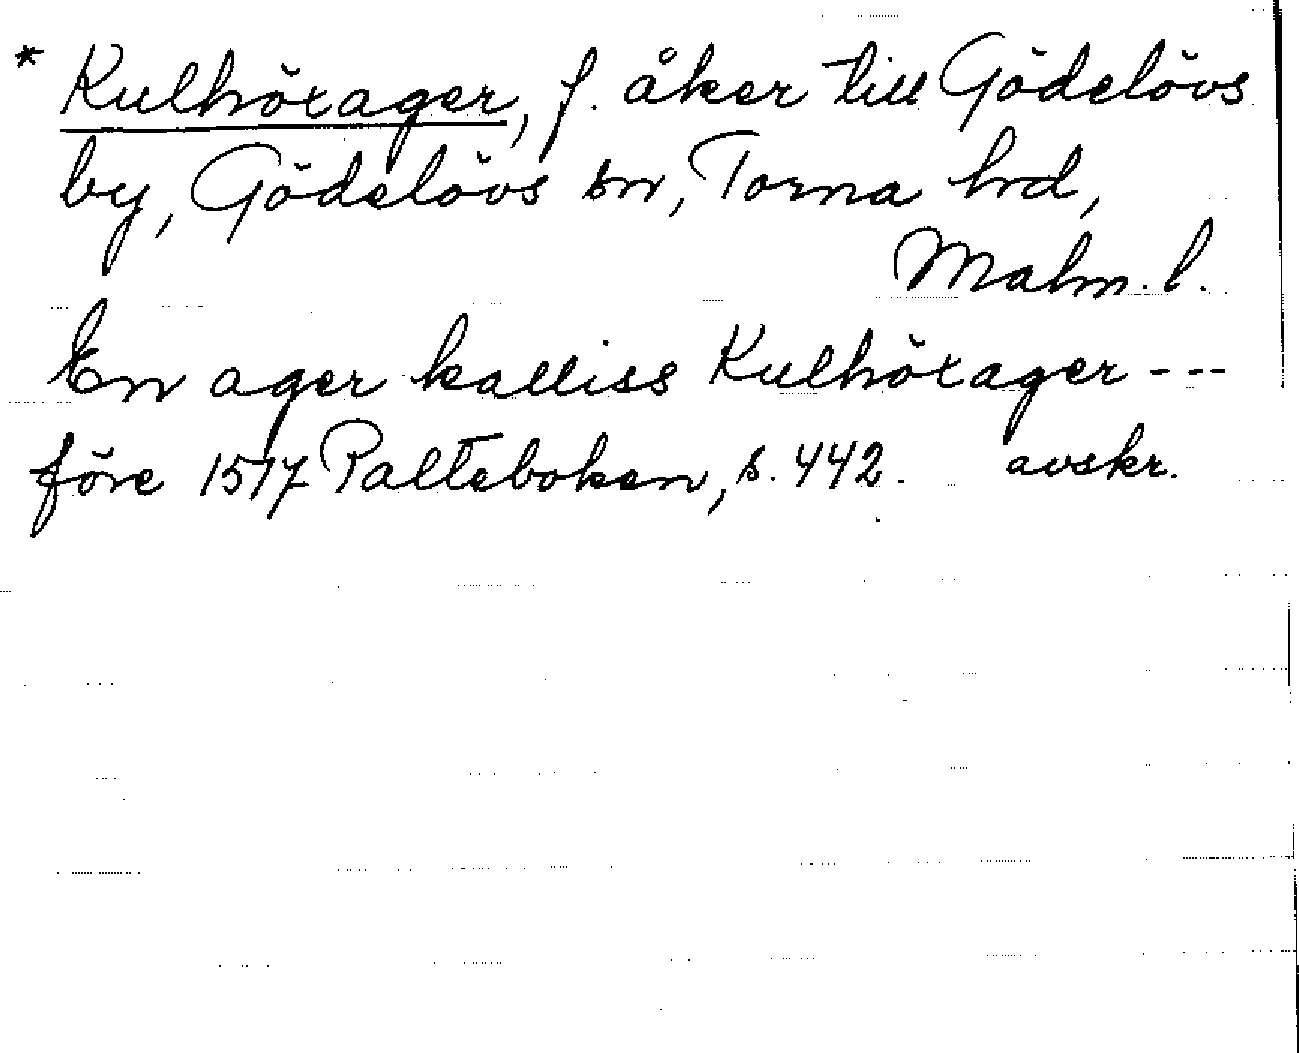 * Kulhöxager, f. åker till Gödelövs
by, Gödelövs sn, Torna hrd,
Malm. l.
En ager kalliss Kulhöxager ---
före 1517 Palteboken, s. 442. avskr.